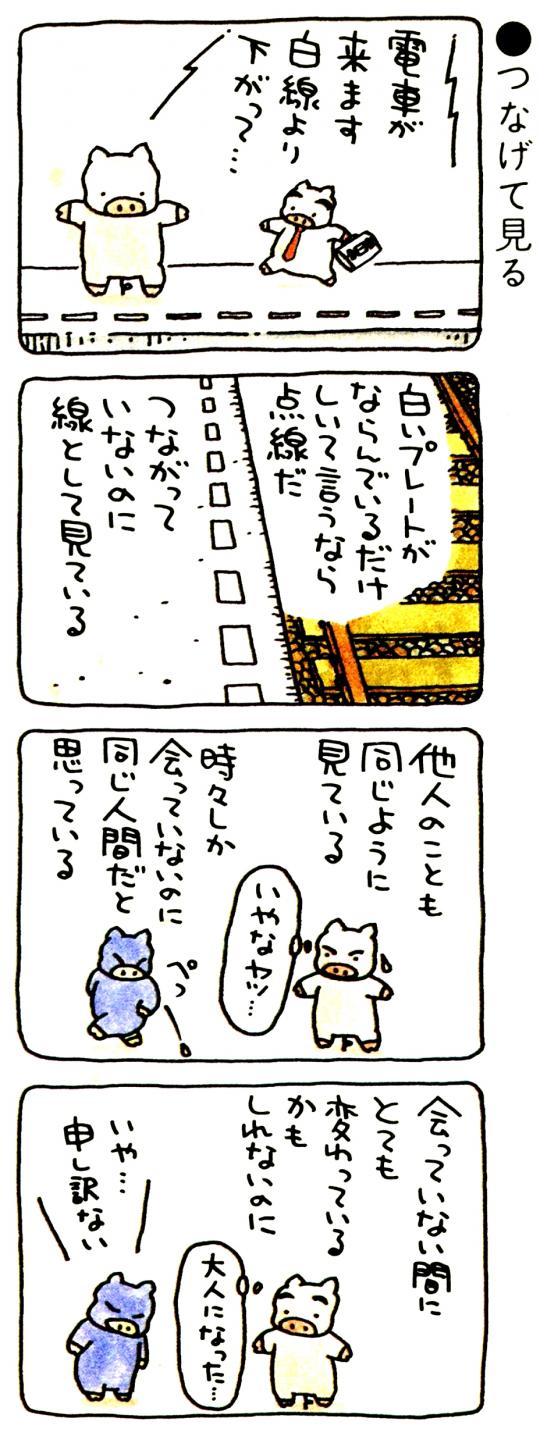 ●つなげて見る
電車が
来ます
白線より
下がって…
白いプレートが
ならんでいるだけ
しいて言うなら
点線だ
つながって
いないのに
線として見ている
他人のことも
同じように
見ている
いやなヤツ…
時々しか
会っていないのに
同じ人間だと
思っている
ペっ
会っていない間に
とても
変わっている
かも
しれないのに
大人になった…
いや…
申し訳ない